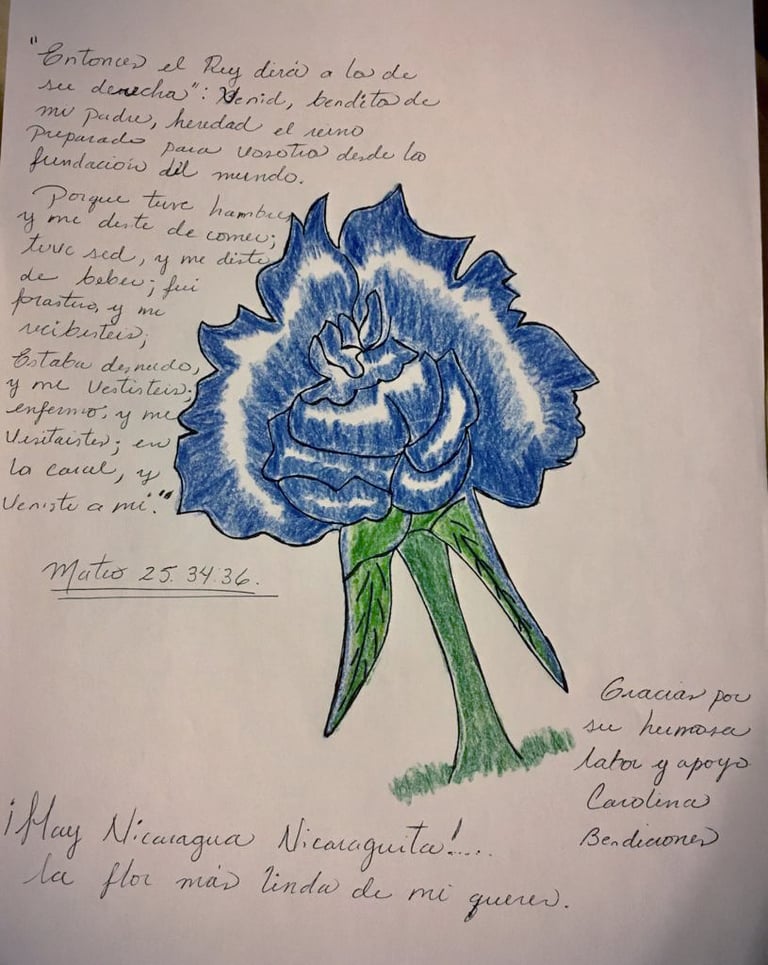 "Entonces el Rey dirá a los de
su derecha": Venid, benditos de
mi padre, heredad el reino
preparado para vosotros desde la
fundación del mundo.
Porque tuve hambre,
y me diste de comer;
tuve sed, y me diste
de beber; fui
forastero, y me
recibisteis;
Estaba desnudo,
y me vestisteis;
enfermo, y me
visitastes; en
la carcel, y
veniste a mi."
Mateo 25.34:36.
Gracias por
su hermosa
labor y apoyo
Carolina
Bendiciones
¡Hay Nicaragua Nicaraguita!....
la flor más linda de mi querer.